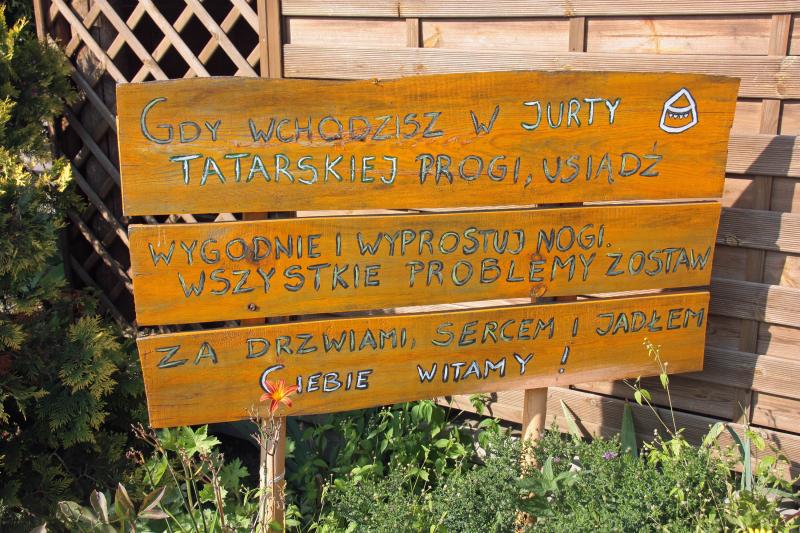 GDY WCHODZISZ W JURTY
TATARSKIEJ PROGI, USIĄDŹ
WYGODNIE I WYPROSTUJ NOGI.
WSZYSTKIE PROBLEMY ZOSTAW
ZA DRZWIAMI, SERCEM I JADŁEM
CIEBIE WITAMY!